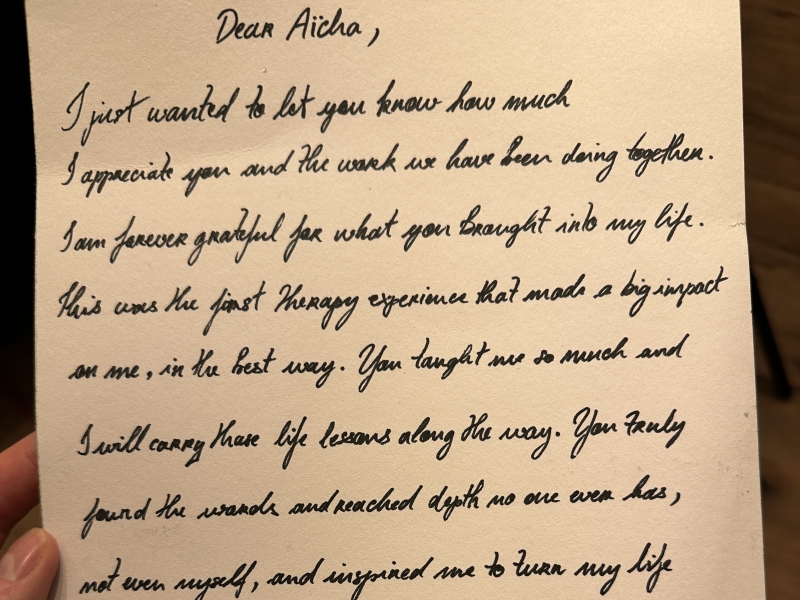 Dear Aïcha,
I just wanted to let you know how much
I appreciate you and the work we have been doing together.
I am forever grateful for what you brought into my life.
This was the first therapy experience that made a big impact
on me, in the best way. You taught me so much and
I will carry those life lessons along the way. You truly
found the words and reached depth no one ever has,
not even myself, and inspired me to turn my life